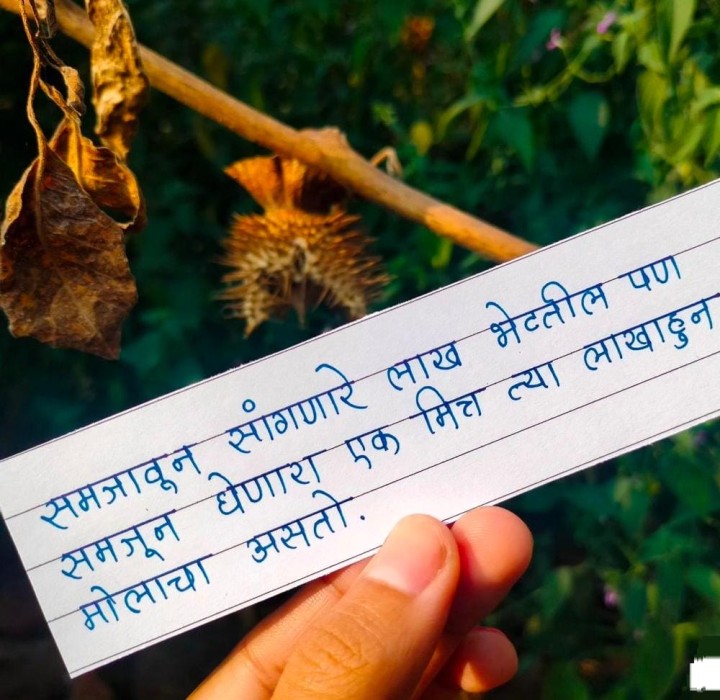 समजावून सांगणारे लाख भेटतील पण
समजून घेणारा एक मित्र त्या लाखाहुन
मोलाचा असतो.